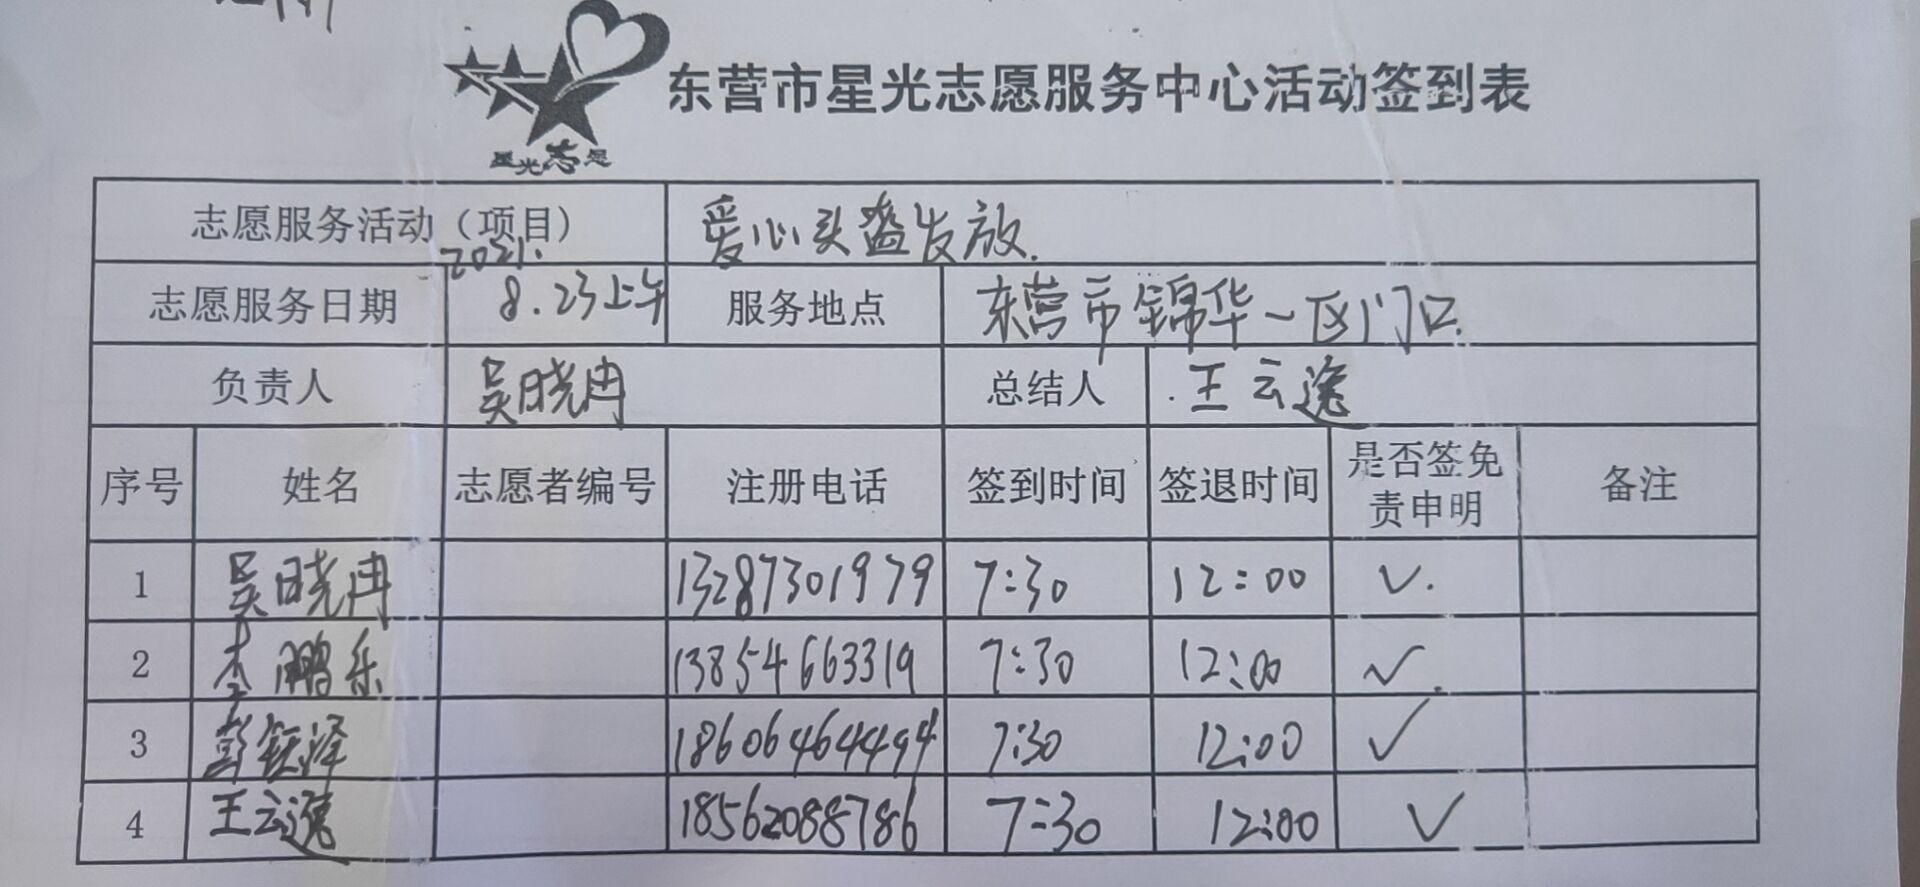 东营市星光志愿服务中心活动签到表
星光志愿
志愿服务活动（项目） 爱心头盔发放.
志愿服务日期 2021. 8.23上午 服务地点 东营市锦华一区门口.
负责人 吴晓冉 总结人 王云逸
序号 姓名 志愿者编号 注册电话 签到时间 签退时间 是否签免责申明 备注
1 吴晓冉 13287301979 7:30 12:00 ✓.
2 李鹏乐 13854663319 7:30 12:00 ✓.
3 泽 18606464494 7:30 12:00 ✓
4 王云逸 18562088786 7:30 12:00 ✓